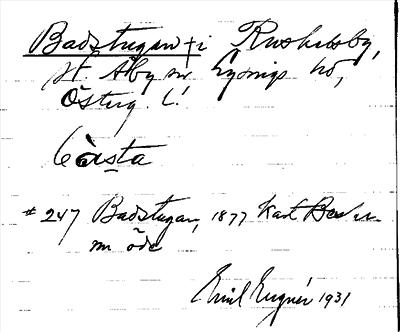 Badstugan + i Ruskelsby,
St. Åby sn Lysings hd,
Österg. l.
bàsta
# 247 Badstugan, 1877 Karl
nu öde
Emil Eugnér 1931